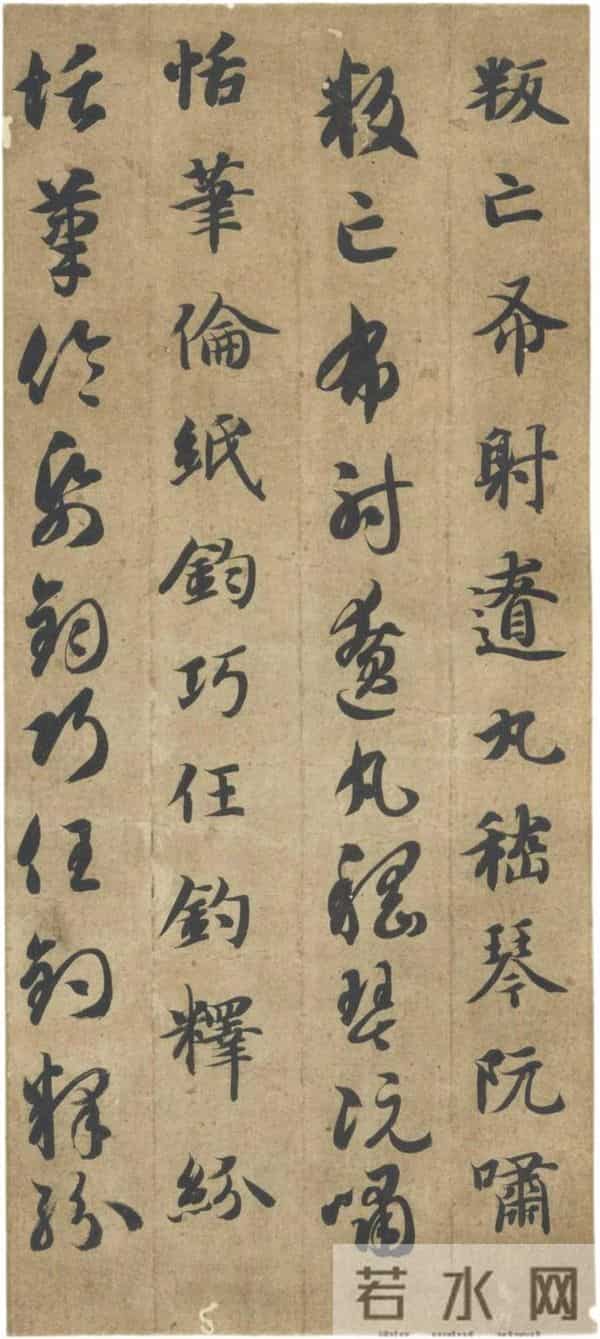 叛亡布射遼丸嵇琴阮嘯
叛亡布射遼丸嵇琴阮嘯
恬筆倫紙鈞巧任釣釋紛
恬筆倫紙鈞巧任釣釋紛
若水网